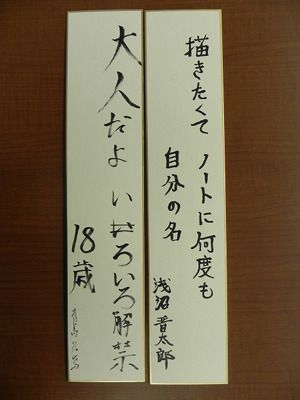 描きたくて ノートに何度も
自分の名
浅沼晋太郎
大人だよ いろいろ解禁
18歳